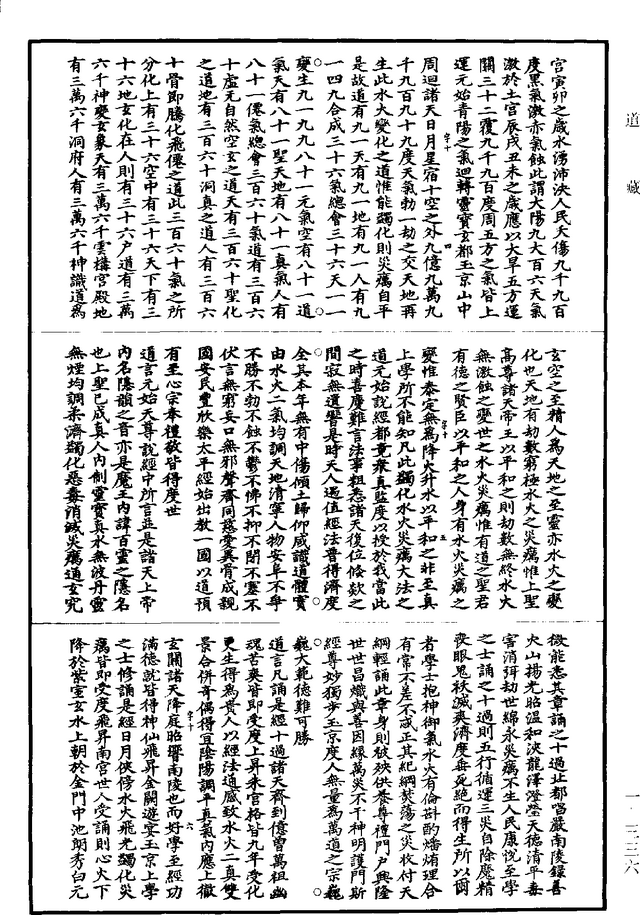 道藏
宮寅卯之歲水蕩沛泱人民夭傷九千九百
度黑氣激亦氣蝕此謂大陽九大百六天氣
激於土宮辰戌丑未之歲應以大旱五方運
關三十二覆九千九百度周五方之氣皆上
運元始青陽之氣迴轉靈寶玄都玉京山中
周迴諸天日月星宿十空之外九億九萬九
千九百九十九度天氣勃一劫之交天地再
生此水火變化之道惟能蠲化則災癘自平
是故道有九一天有九一地有九一人有九
一四九合成三十六氣總會三十六天一一
變生九一九九八十一元氣空有八十一道
氣天有八十一聖天地有八十一真氣人有
八十一僊氣總會三百六十氣道有三百六
十虛无自然空玄之道天有三百六十聖化
之道地有三百六十洞真之道人有三百六
十骨即騰化飛僊之道此三百六十氣之所
分化上有三十六空中有三十六天下有三
十六地玄化在人則有三十六户道有三萬
六千神變玄象天有三萬六千雲構宮殿地
有三萬六千洞府人有三萬六千神識道為
玄空之至精人為天地之至靈亦水火之變
化也天地有劫數窮極水火之災癘惟上聖
高尊諸天帝王以平和之則劫數無終水火
無激蝕之變世之水火災癘惟有道之聖君
有德之賢臣以平和之人身有水火災癘之
變惟泰定無為降火升水以平和之非至真
上學所不能知凡此蠲化水火災癘大法之
道元始說經都竟衆真監度以授於我當此
之時喜慶難言法事粗悉諸天復位倏欻之
間寂無遺響是時天人遇值經法普得濟度
全其本年無有中傷傾土歸仰咸識道體實
由水火二氣均調天地清寧人物安阜不爭
不勝不勃不蝕不鬱不怫不抑不閉不塞不
伏言無窮妄口無邪聲齊同慈愛異骨成親
國安民豐欣樂太平經始出教一國以道預
有至心宗奉禮敬皆得度世
道言元始天尊說經中所言並是諸天上帝
內名隱韻之音亦是魔王內諱百靈之隱名
也上聖已成真人內創靈寶真水無波丹靈
無煙均調柔濟蠲化惡毒消滅災癘通玄究
微能悉其章誦之十過止都唱嚴南陵録善
火山揚光昭溫和決龍澤澄瑩天德清平毒
害消弭劫世綿永災癘不生人民康悅至學
之士誦之十過則五行循運三災自除魔精
喪眼鬼袄滅爽濟度垂死絶而得生所以爾
者學士抱神御氣水火有倫斟酌燔烳理合
有常不差不忒正其紀綱焚蕩之災枚付天
綱輕誦此章身則被殃供養尊禮門户興隆
世世昌熾與善因緣萬災不干神明護門斯
經尊妙獨步玉京度人無量為萬道之宗巍
巍大範德難可勝
道言凡誦是經十過諸天齊到億曽萬祖幽
魂苦爽皆即受度上昇朱宮格皆九年受化
更生得為貴人以經法道感致水火二真雙
景合併奇偶得宜陰陽調平真氣內應上徹
玄關諸天降庭昭晉南陵也而好學至經功
滿德就皆得神仙飛昇金闕遊宴玉京上學
之士修誦是經日月俠傍水火飛光蠲化災
癘皆即受度飛昇南宮世人受誦則心火下
降於紫室玄水上朝於金門中池朗秀白元
字十
四
字十
五
字十
六
一—三三六